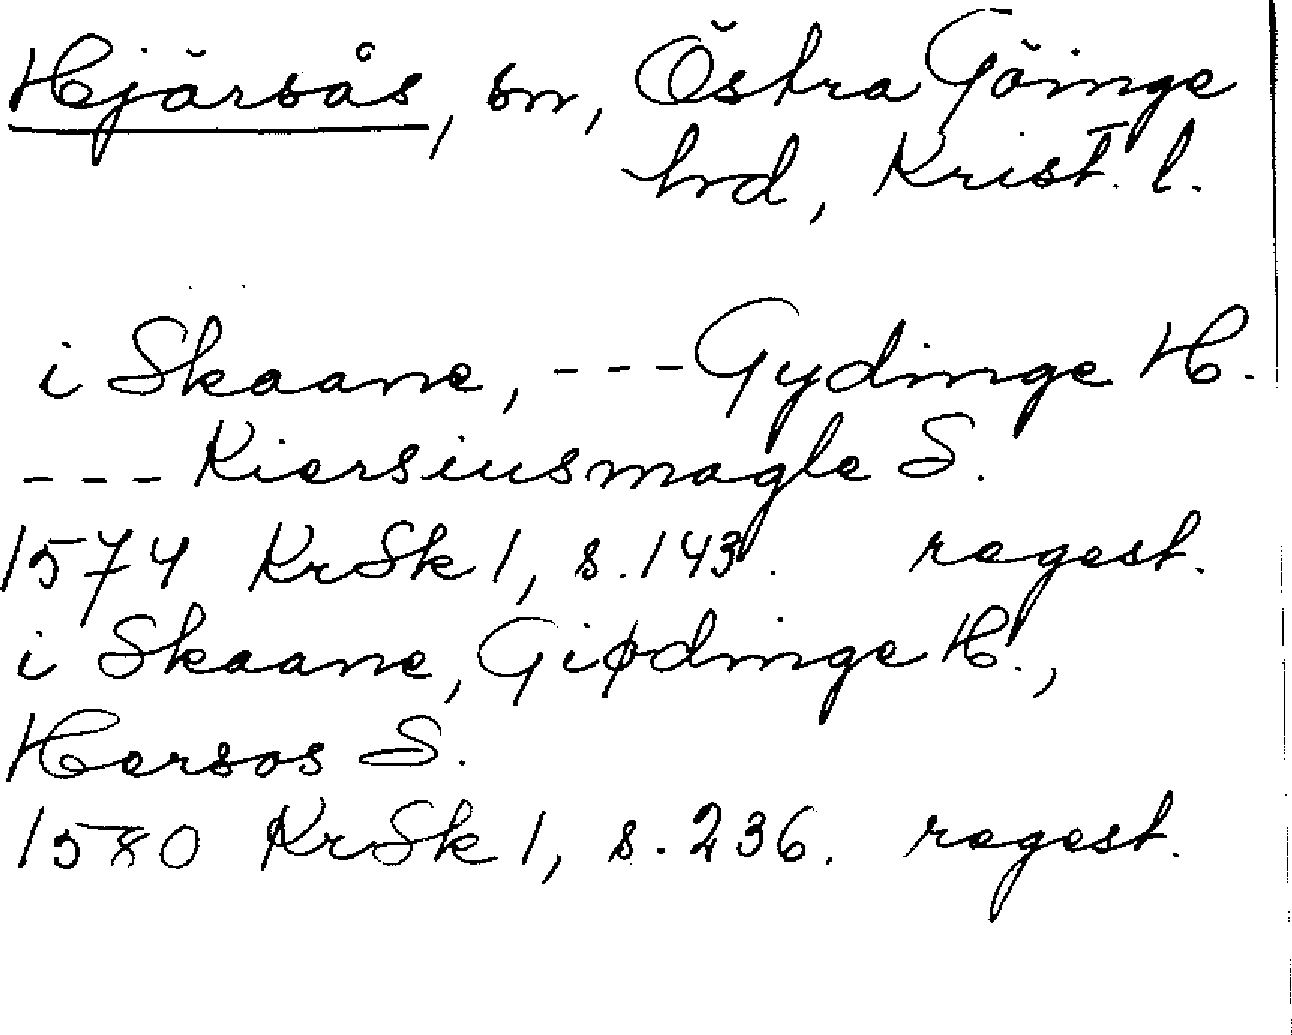 Hjärsås, sn, Östra Göinge
hrd, Krist. l.
i Skaane, --- Gydinge H.
--- Kiersiusmagle S.
1574 KrSk 1, s. 143. regest.
i Skaane, Giødinge H.,
Hersos S.
1580 KrSk 1, s. 236. regest.